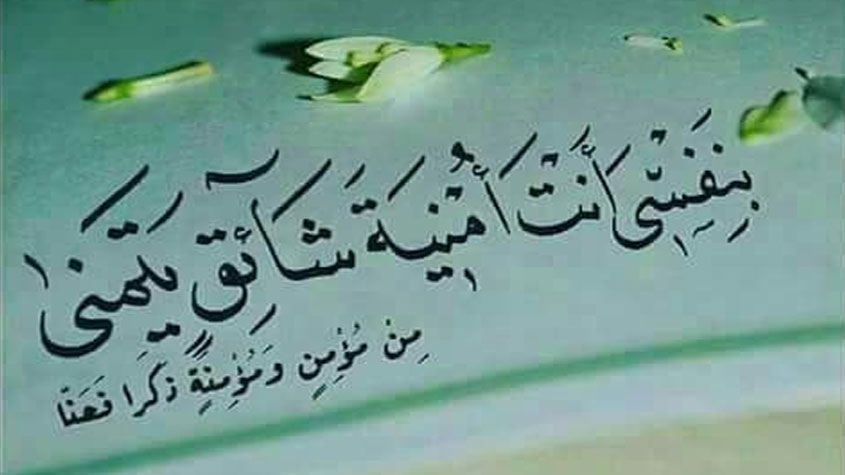 بِنَفْسِي أَنْتَ أُمْنِيَةَ شَائِقٍ يَتَمَنَّى
مِنْ مُؤْمِنٍ وَمُؤْمِنَةٍ ذَكَرَا فَحَنَّا